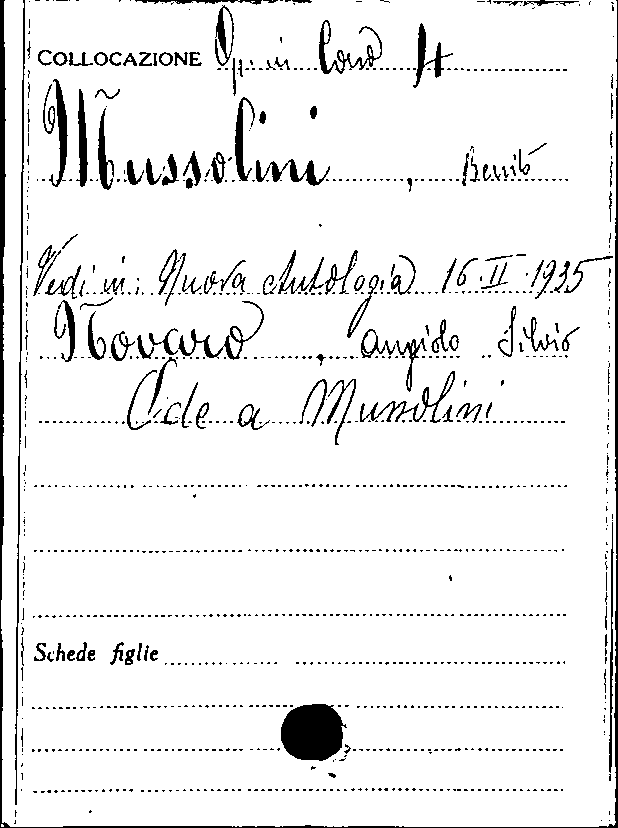 COLLOCAZIONE Op. in Cons 14
Mussolini, Benito
Vedi in: Nuova Antologia 16·II·1935
Novaro, Angiolo Silvio
Ode a Mussolini
Schede figlie